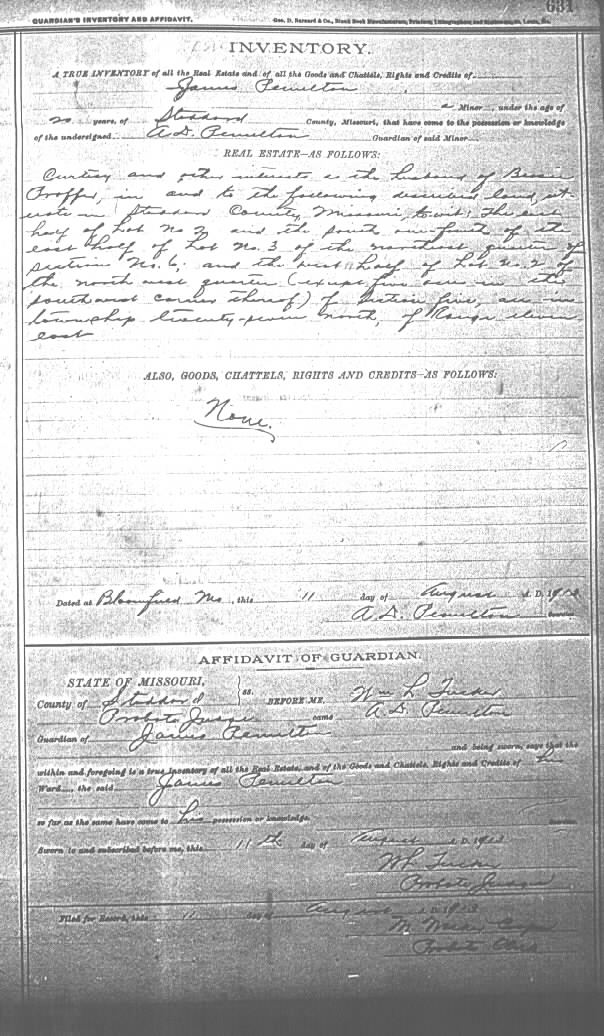 631
GUARDIAN'S INVENTORY AND AFFIDAVIT. Geo. D. Barnard & Co., Blank Book Manufacturers, Louis, Mo.
INVENTORY.
A TRUE INVENTORY of all the Real Estate and of all the Goods and Chattels, Rights and Credits of
James Pemilton
a Minor, under the age of
20 years, of Stoddard County, Missouri, that have come to the possession or knowledge
of the undersigned A. D. Pemilton Guardian of said Minor
REAL ESTATE—AS FOLLOWS:
Curtesy and other interests as the husband of Bessie
Proffer, in and to the following described land, sit-
uate in Stoddard County, Missouri, to wit; The east
half of Lot No 2 and the south one-fourth of the
east half of Lot No. 3 of the northeast quarter of
section No. 6; and the west half of Lot No. 2 of
the north west quarter (except five acres in the
southwest corner thereof) of section five, all in
township twenty-seven north, of Range eleven
east
ALSO, GOODS, CHATTELS, RIGHTS AND CREDITS—AS FOLLOWS:
None.
Dated at Bloomfield Mo, this 11 day of August A. D. 19
A. D. Pemilton
AFFIDAVIT OF GUARDIAN.
STATE OF MISSOURI,
County of Stoddard ss. BEFORE ME, Wm L. Tucker
Probate Judge came A. D. Pemilton
Guardian of James Pemilton
and being sworn, says that the
within and foregoing is a true Inventory of all the Real Estate, and of the Goods and Chattels, Rights and Credits of his
Ward, the said James Pemilton
so far as the same have come to his possession or knowledge.
Sworn to and subscribed before me, this 11th day of August A. D. 19
W L Tucker
Probate Judge
Filed for Record, this 11 day of August A. D. 19
Probate Clerk